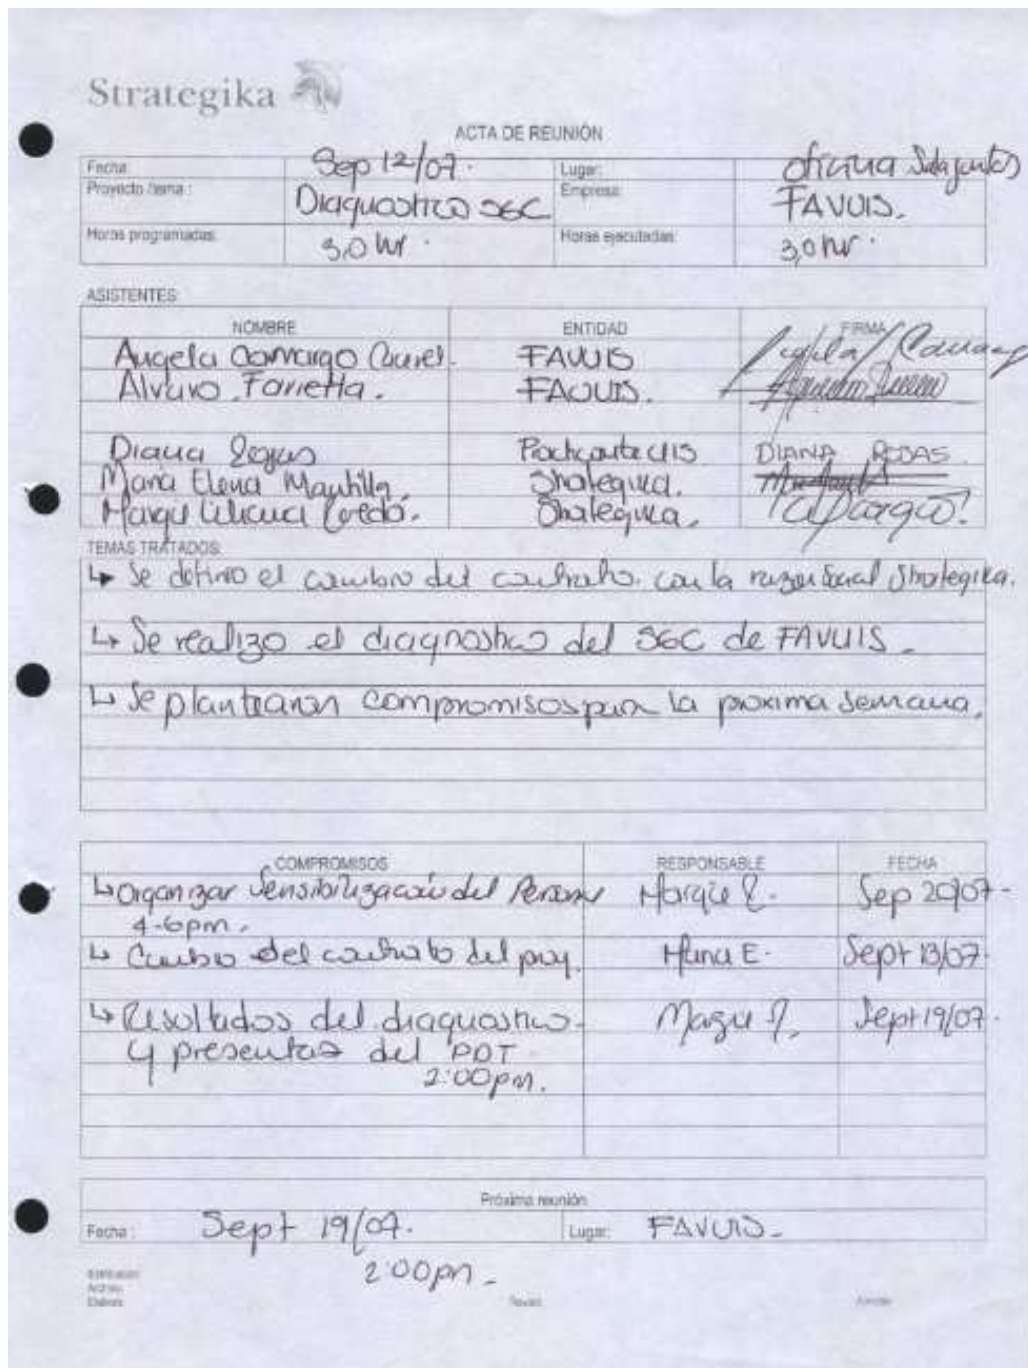 Strategika
ACTA DE REUNIÓN
Fecha: Sep 12/07. Lugar: oficina Sala juntas
Proyecto /tema : Diagnostico SGC Empresa: FAVUIS.
Horas programadas: 3,0 hr. Horas ejecutadas: 3,0 hr.
ASISTENTES:
NOMBRE ENTIDAD FIRMA
Angela Camargo FAVUIS
Alvaro FAVUIS.
Diana Rojas DIANA ROJAS
Maria Elena Mantilla. Strategika.
Strategika.
TEMAS TRATADOS:
↳ Se definio el cambio del contrato. con la razon social Strategika.
↳ Se realizo el diagnostico del SGC de FAVUIS.
↳ Se plantearon compromisos para la proxima semana.
COMPROMISOS RESPONSABLE FECHA
↳ Organizar Sensibilización del Personal Sep 20/07-
4-6pm.
↳ Cambio del contrato del proy. Maria E. Sept 13/07.
↳ Resultados del diagnostico. Sept 19/07.
y del PDT
2:00pm.
Próxima reunión
Fecha : Sept 19/07. Lugar: FAVUIS.
2:00pm.